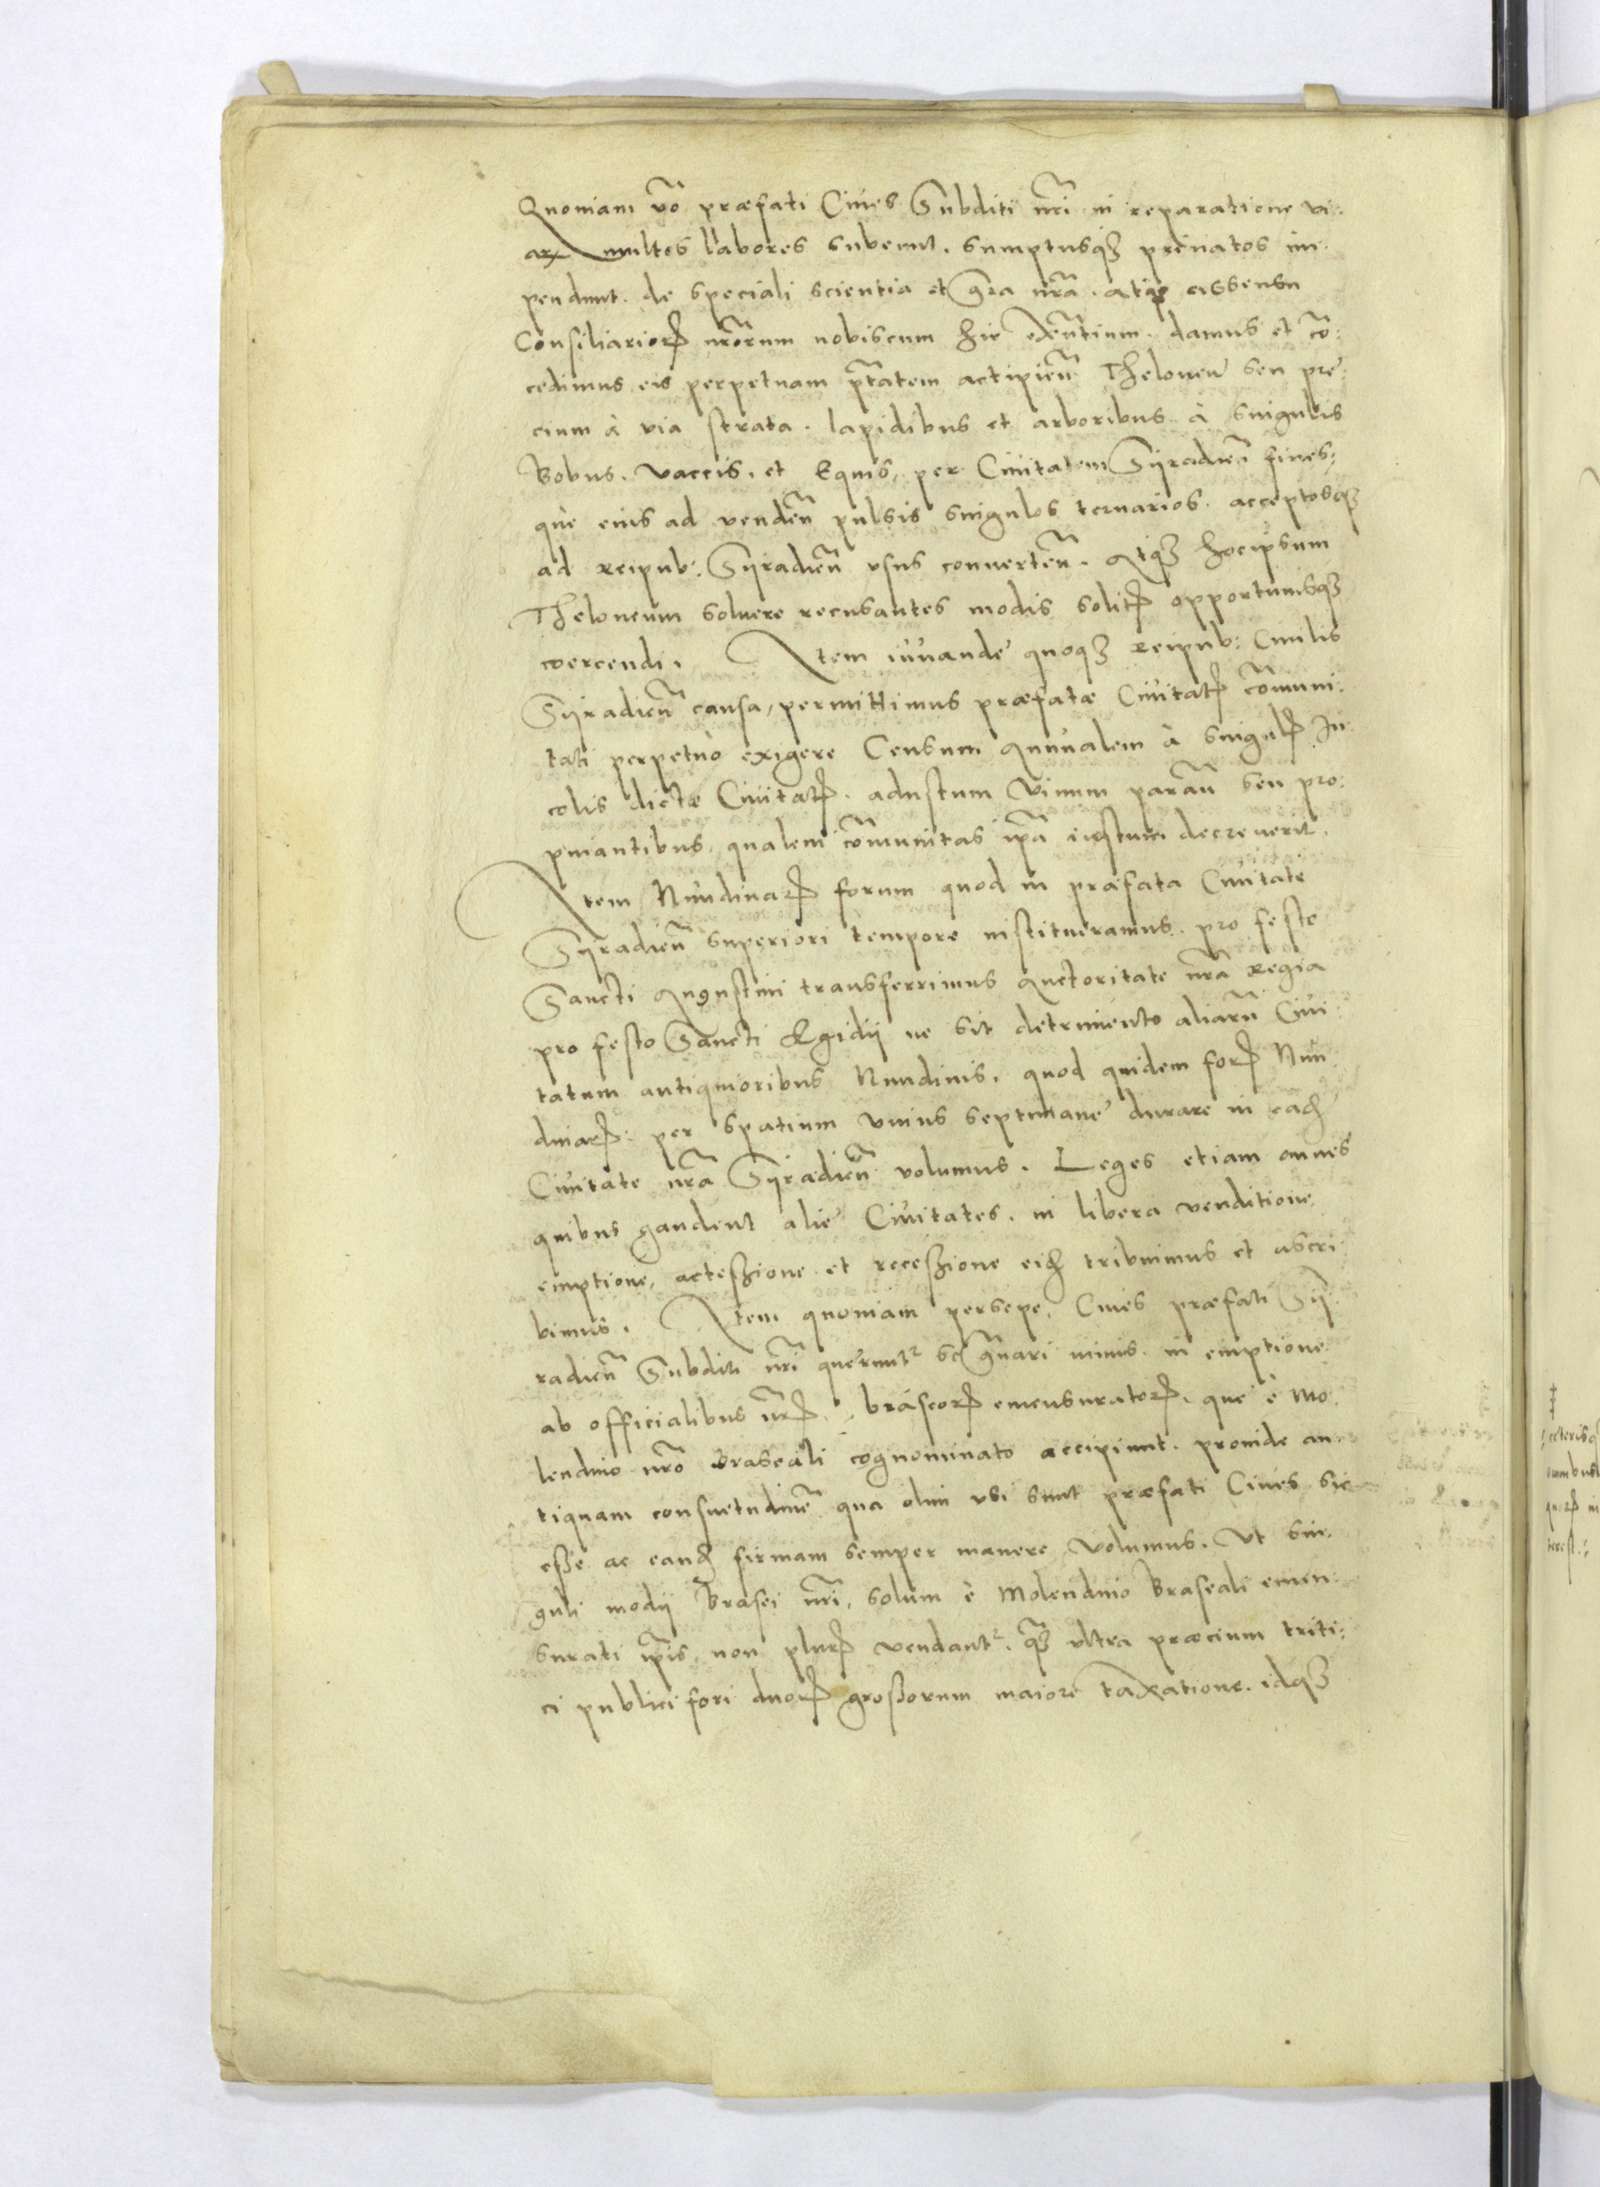 Quoniam vo præfati Ciues Subditi nri in reparatione vi:
arum multos labores subeunt, sumptusq priuatos im
pendunt. de speciali scientia et gra nra. atq assensu
Consiliarior nrorum nobiscum hic existentium. damus et co:
cedimus eis perpetuam ptatem accipien Theloneu seu pre
cium à via strata. lapidibus et arboribus à singulis
Bobus. vaccis. et Equis, per Ciuitatem Syradien fines:
que eius ad venden pulsis singulos ternarios. acceptosq
ad reipub: Syradien vsus conuerten. Atq hocipsum
Theloneum soluere recusantes modis solit opportunisq
coercendi. Item iuuande quoq reipub: Ciuilis
Syradien causa, permittimus præfatæ Ciuitat comuni:
tati perpetuò exigere Censum Annualem à singul In
colis dictæ Ciuitat. adustum Vinum paran seu pro:
pinantibus, qualem comunitas ipa iustum decreuerit.
Item Nundinar forum quod in præfata Ciuitate
Syradien superiori tempore institueramus. pro festo
Sancti Augustini transferrimus Auctoritate nra Regia
pro festo Sancti Egidij ne sit detrimento aliaru Ciui
tatum antiquioribus Nundinis. quod quidem for Nun
dinar: per spatium vnius septimane durare in ead
Ciuitate nra Syradien volumus. Leges etiam omnes
quibus gaudent alie Ciuitates. in libera venditione
emptione, accessione et recessione eid tribuimus et ascri
bimus. Item quoniam persepe, Ciues præfati Sy
radien Subditi nri querunt se grauari nimis in emptione
ab officialibus nr, braseor emensurator, que è Mo
lendino nro Braseali cognominato accipiunt. proinde an
tiquam consuetudine qua olim vsi sunt præfati Ciues sic
esse ac eand firmam semper manere volumus. Vt sin
guli modij Brasei nri, solum è Molendino Braseali emen
surati ipis, non plur vendant. q vltra præcium triti:
ci publici fori duor grossorum maiore taxatione. idq